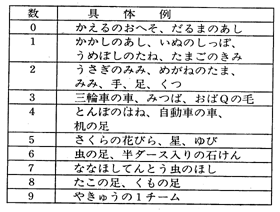 数 具体例
0 かえるのおへそ、だるまのあし
1 かかしのあし、いぬのしっぽ、
うめぼしのたね、たまごのきみ
2 うさぎのみみ、めがねのたま、
みみ、手、足、くつ
3 三輪車の車、みつば、おばQの毛
4 とんぼのはね、自動車の車、
机の足
5 さくらの花びら、星、ゆび
6 虫の足、半ダース入りの石けん
7 ななほしてんとう虫のほし
8 たこの足、くもの足
9 やきゅうの1チーム